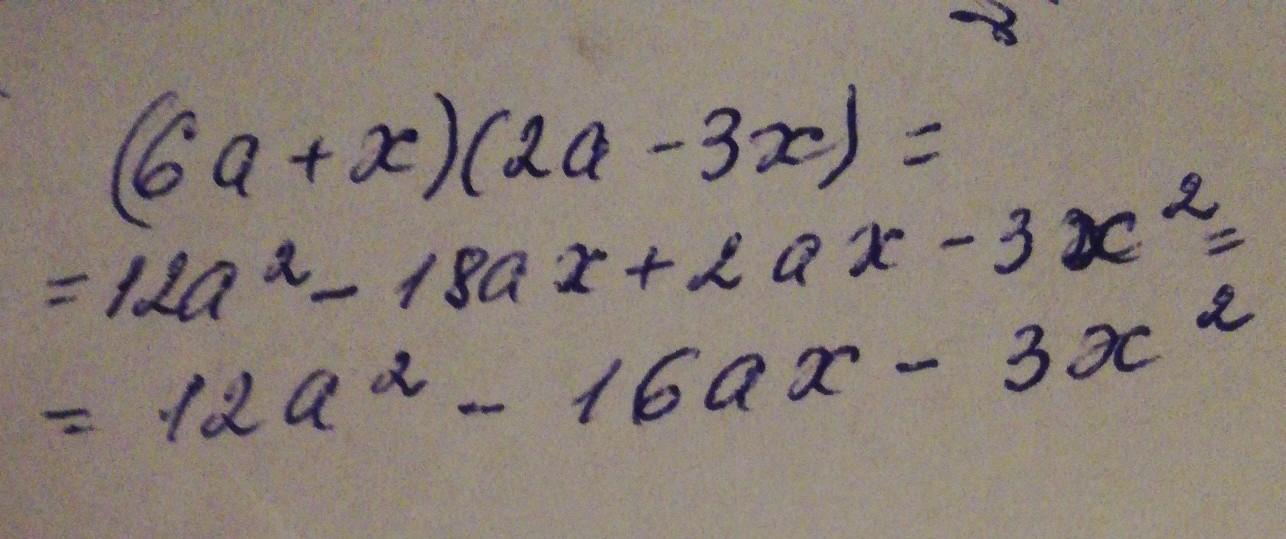 (6a + x)(2a - 3x) =
= 12a² - 18ax + 2ax - 3x² =
= 12a² - 16ax - 3x²